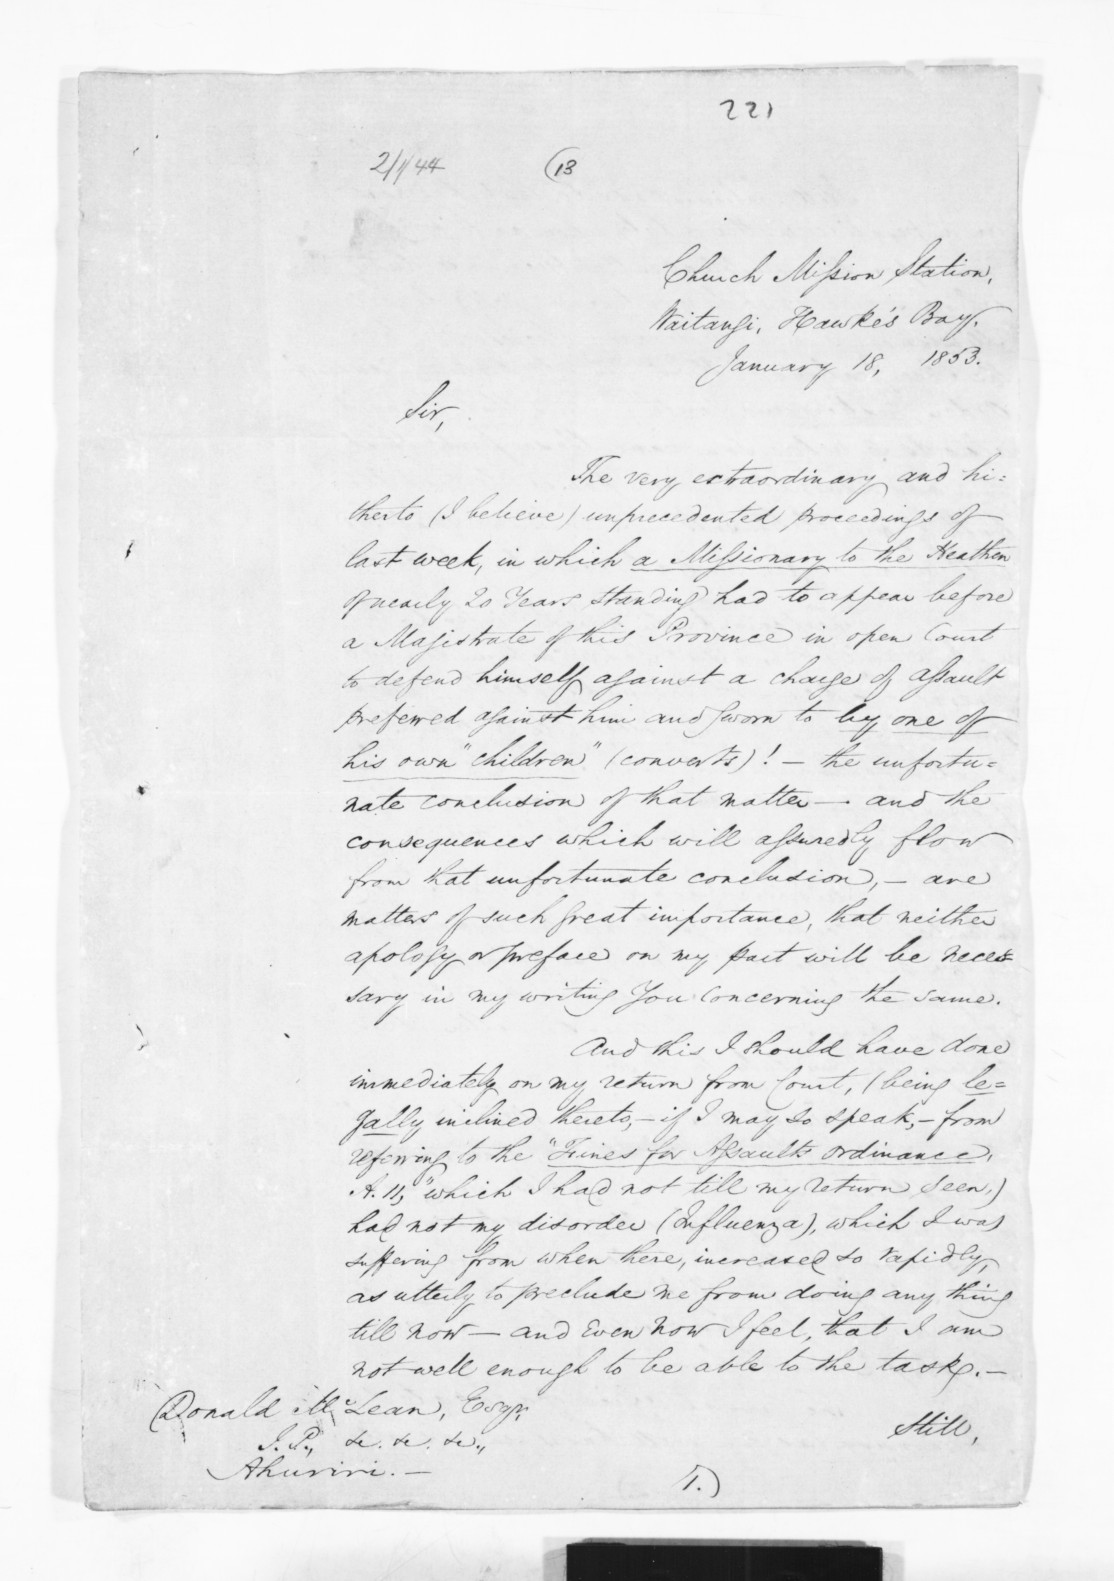 221
2/1/44 (13
Church Mission Station,
Waitangi, Hawke's Bay.
January 18, 1853.
Sir,
The very extraordinary and hi=
therto (I believe) unprecedented proceedings of
last week, in which a Missionary to the Heathen
of nearly 20 Years standing had to appear before
a Magistrate of this Province in open Court
to defend himself against a charge of assault
preferred against him and sworn to by one of
his own "children" (converts)! — the unfortu=
nate conclusion of that matter —. and the
consequences which will assuredly flow
from that unfortunate conclusion, — are
matters of such great importance, that neither
apology or preface on my part will be neces=
sary in my writing You concerning the same.
And this I should have done
immediately on my return from Court, (being le=
gally inclined thereto, — if I may so speak, — from
referring to the "Fines for Assaults Ordinance,
A. 11," which I had not till my return seen,)
had not my disorder (Influenza), which I was
suffering from when there, increased so rapidly,
as utterly to preclude me from doing any thing
till now — and even now I feel, that I am
not well enough to be able to the task. —
Still,
Donald McLean, Esqr,
J. P., &c. &c. &c.,
Ahuriri. —
1.)